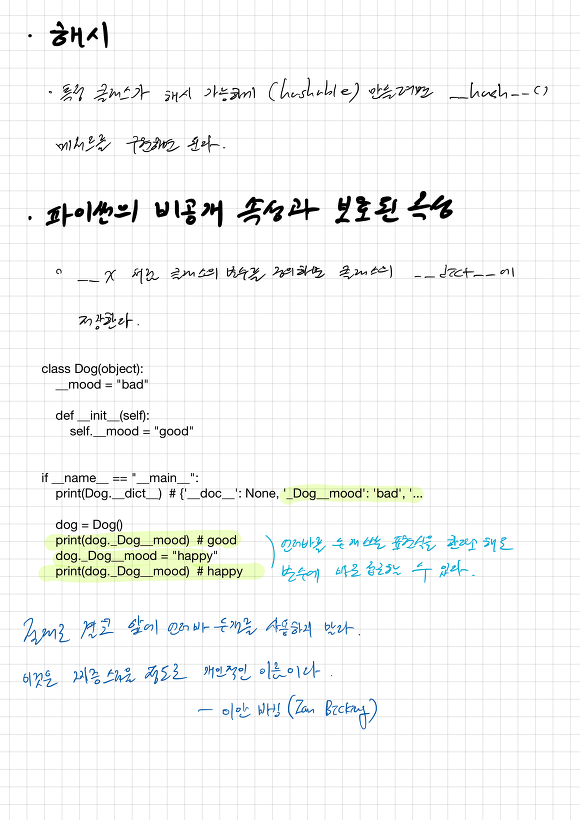 · 해시
· 특정 클래스가 해시 가능하게 (hashable) 만들려면 __hash__()
메서드를 구현하면 된다.
· 파이썬의 비공개 속성과 보호된 속성
◦ __x 처럼 클래스의 변수를 정의하면 클래스의 __dict__에
저장한다.
class Dog(object):
    __mood = "bad"
    def __init__(self):
        self.__mood = "good"
if __name__ == "__main__":
    print(Dog.__dict__)  # {'__doc__': None, '_Dog__mood': 'bad', '...
    dog = Dog()
    print(dog._Dog__mood)  # good
    dog._Dog__mood = "happy"
    print(dog._Dog__mood)  # happy
언더바를 두개 쓰는 표현식을 한다고 해도
변수에 바로 접근하는 수 있다.
절대로 결코 앞에 언더바 두개를 사용하지 말라.
이것은 짜증스러울 정도로 개인적인 이름이다.
— 이안 바킹 (Ian Bicking)